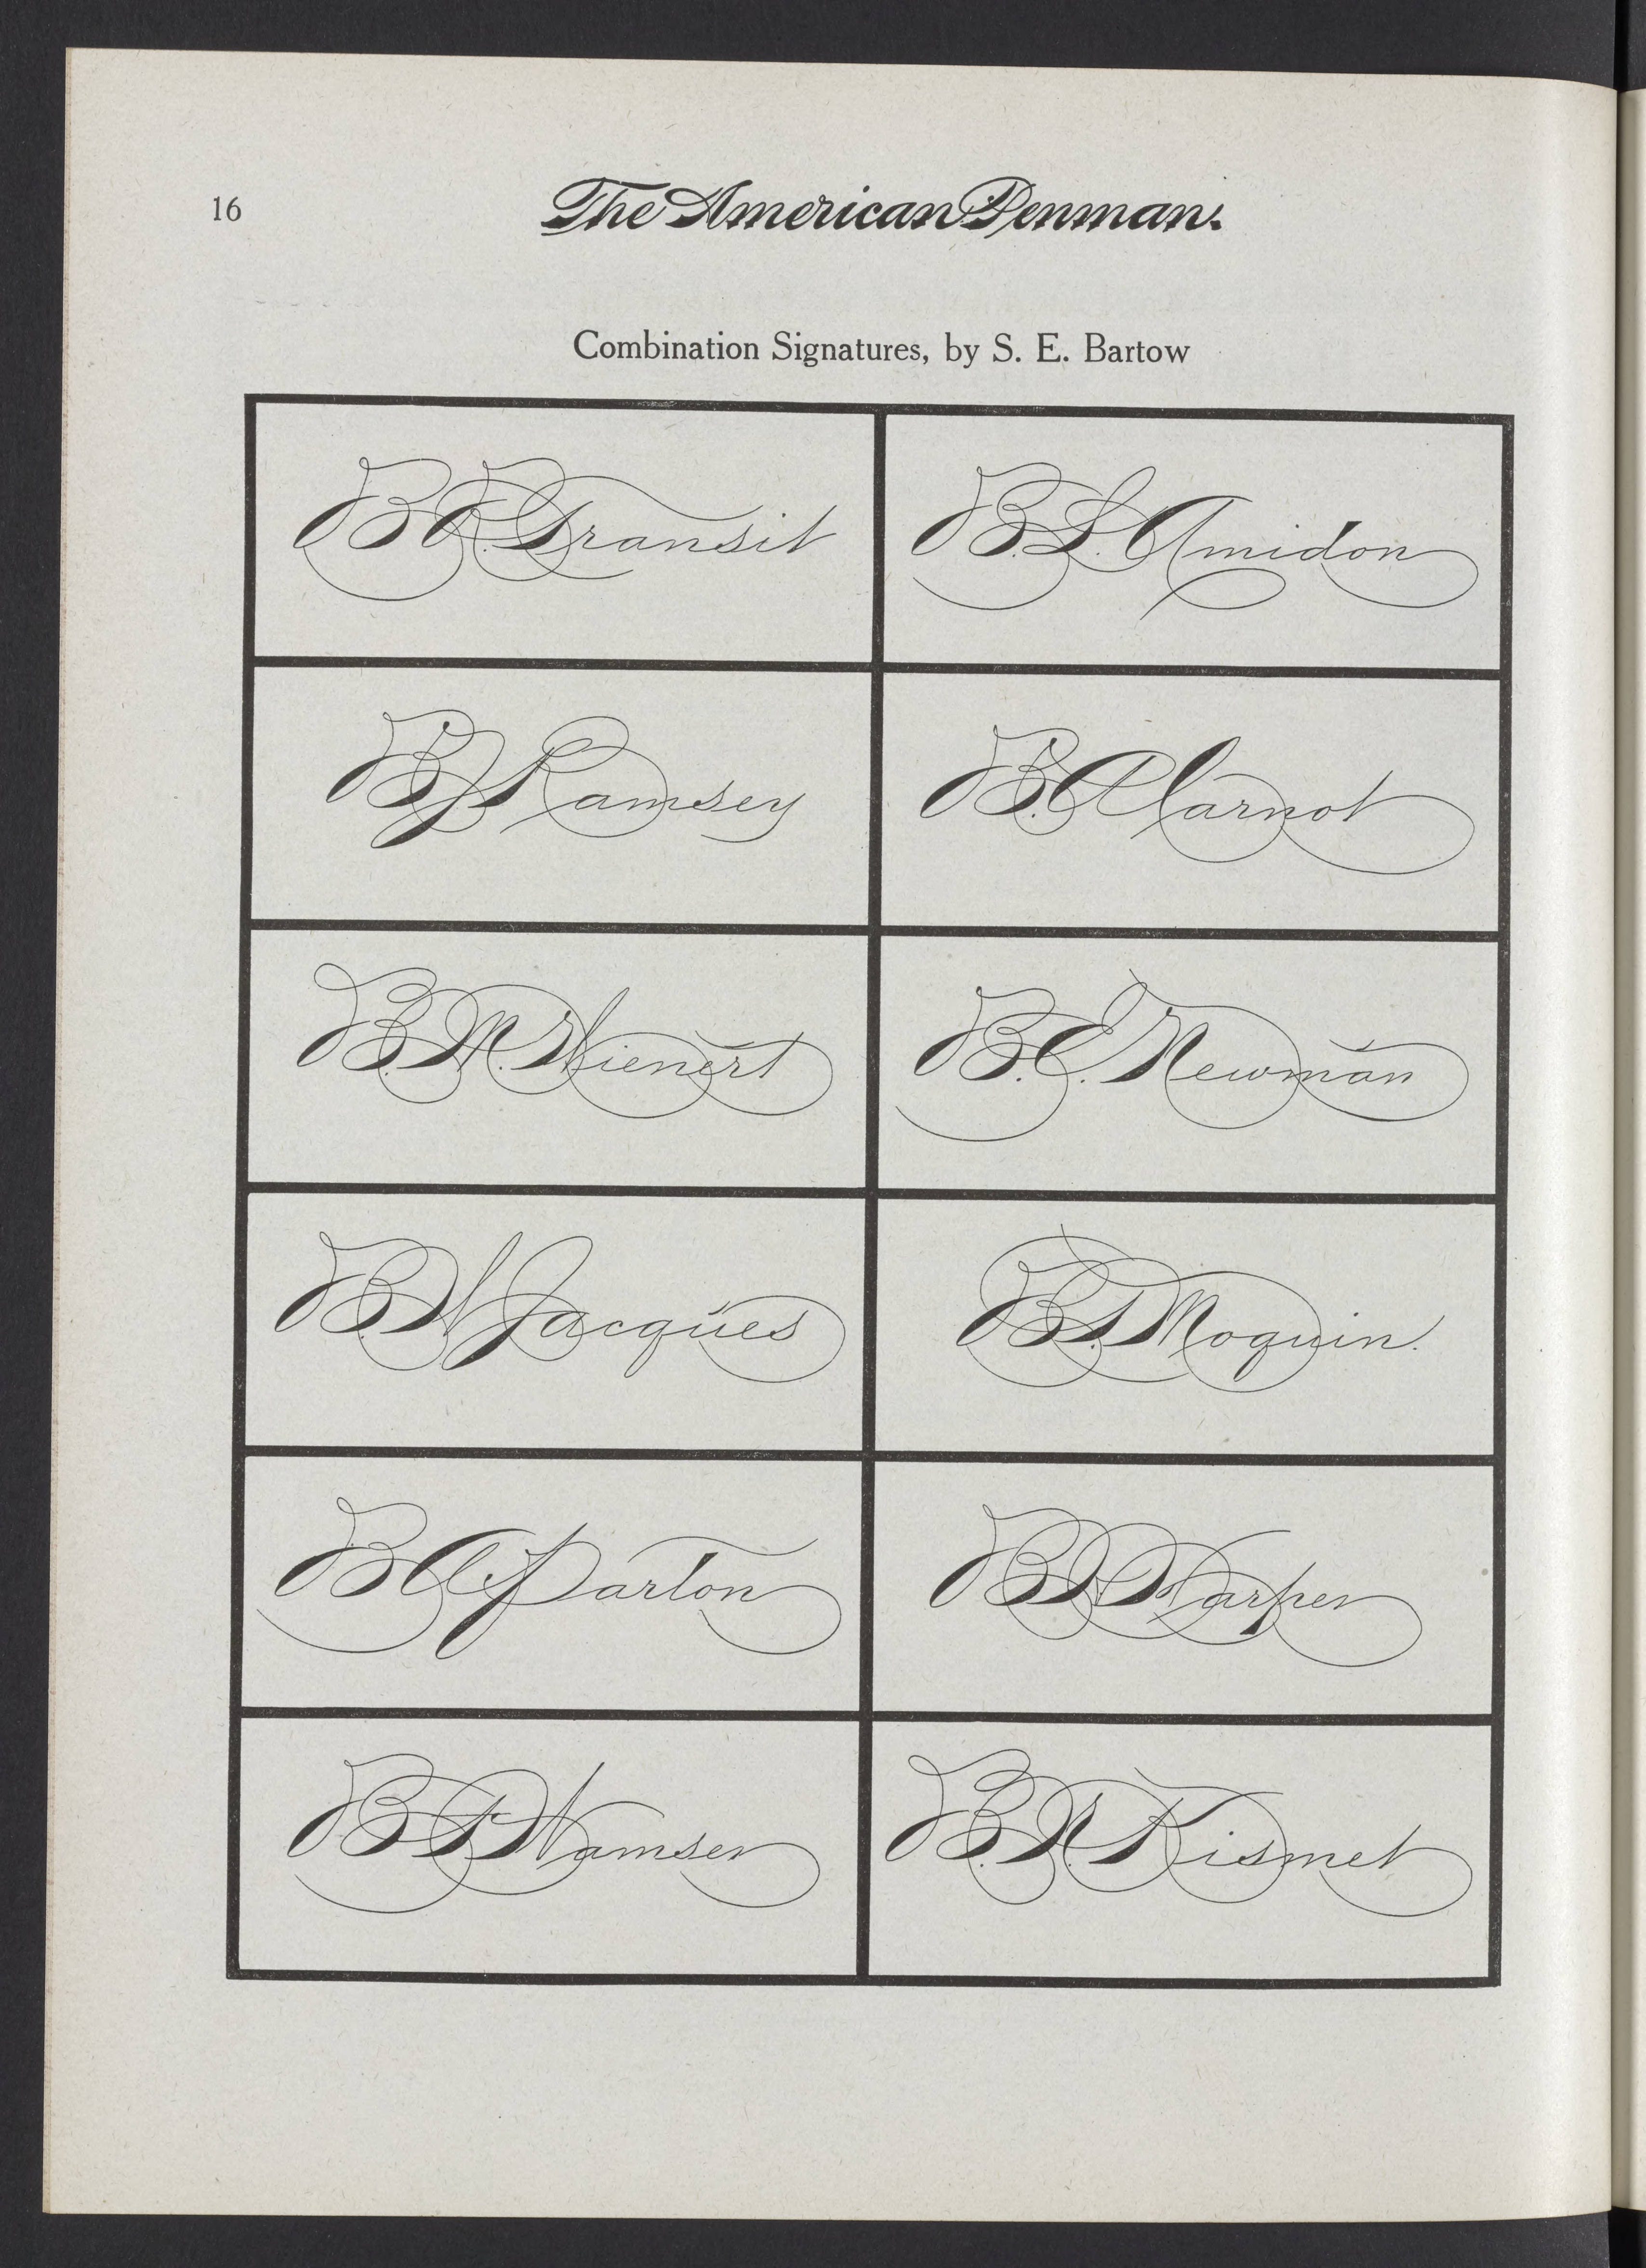 16
The American Penman.
Combination Signatures, by S. E. Bartow
B. R. Transit
B. L. Amidon
B. J. Ramsey
B. A. Carnot
B. M. Wienert
B. C. Newman
B. W. Jacques
B. S. Moquin.
B. C. Parton
B. Harper
B. P. Wamser
B. N. Kismet